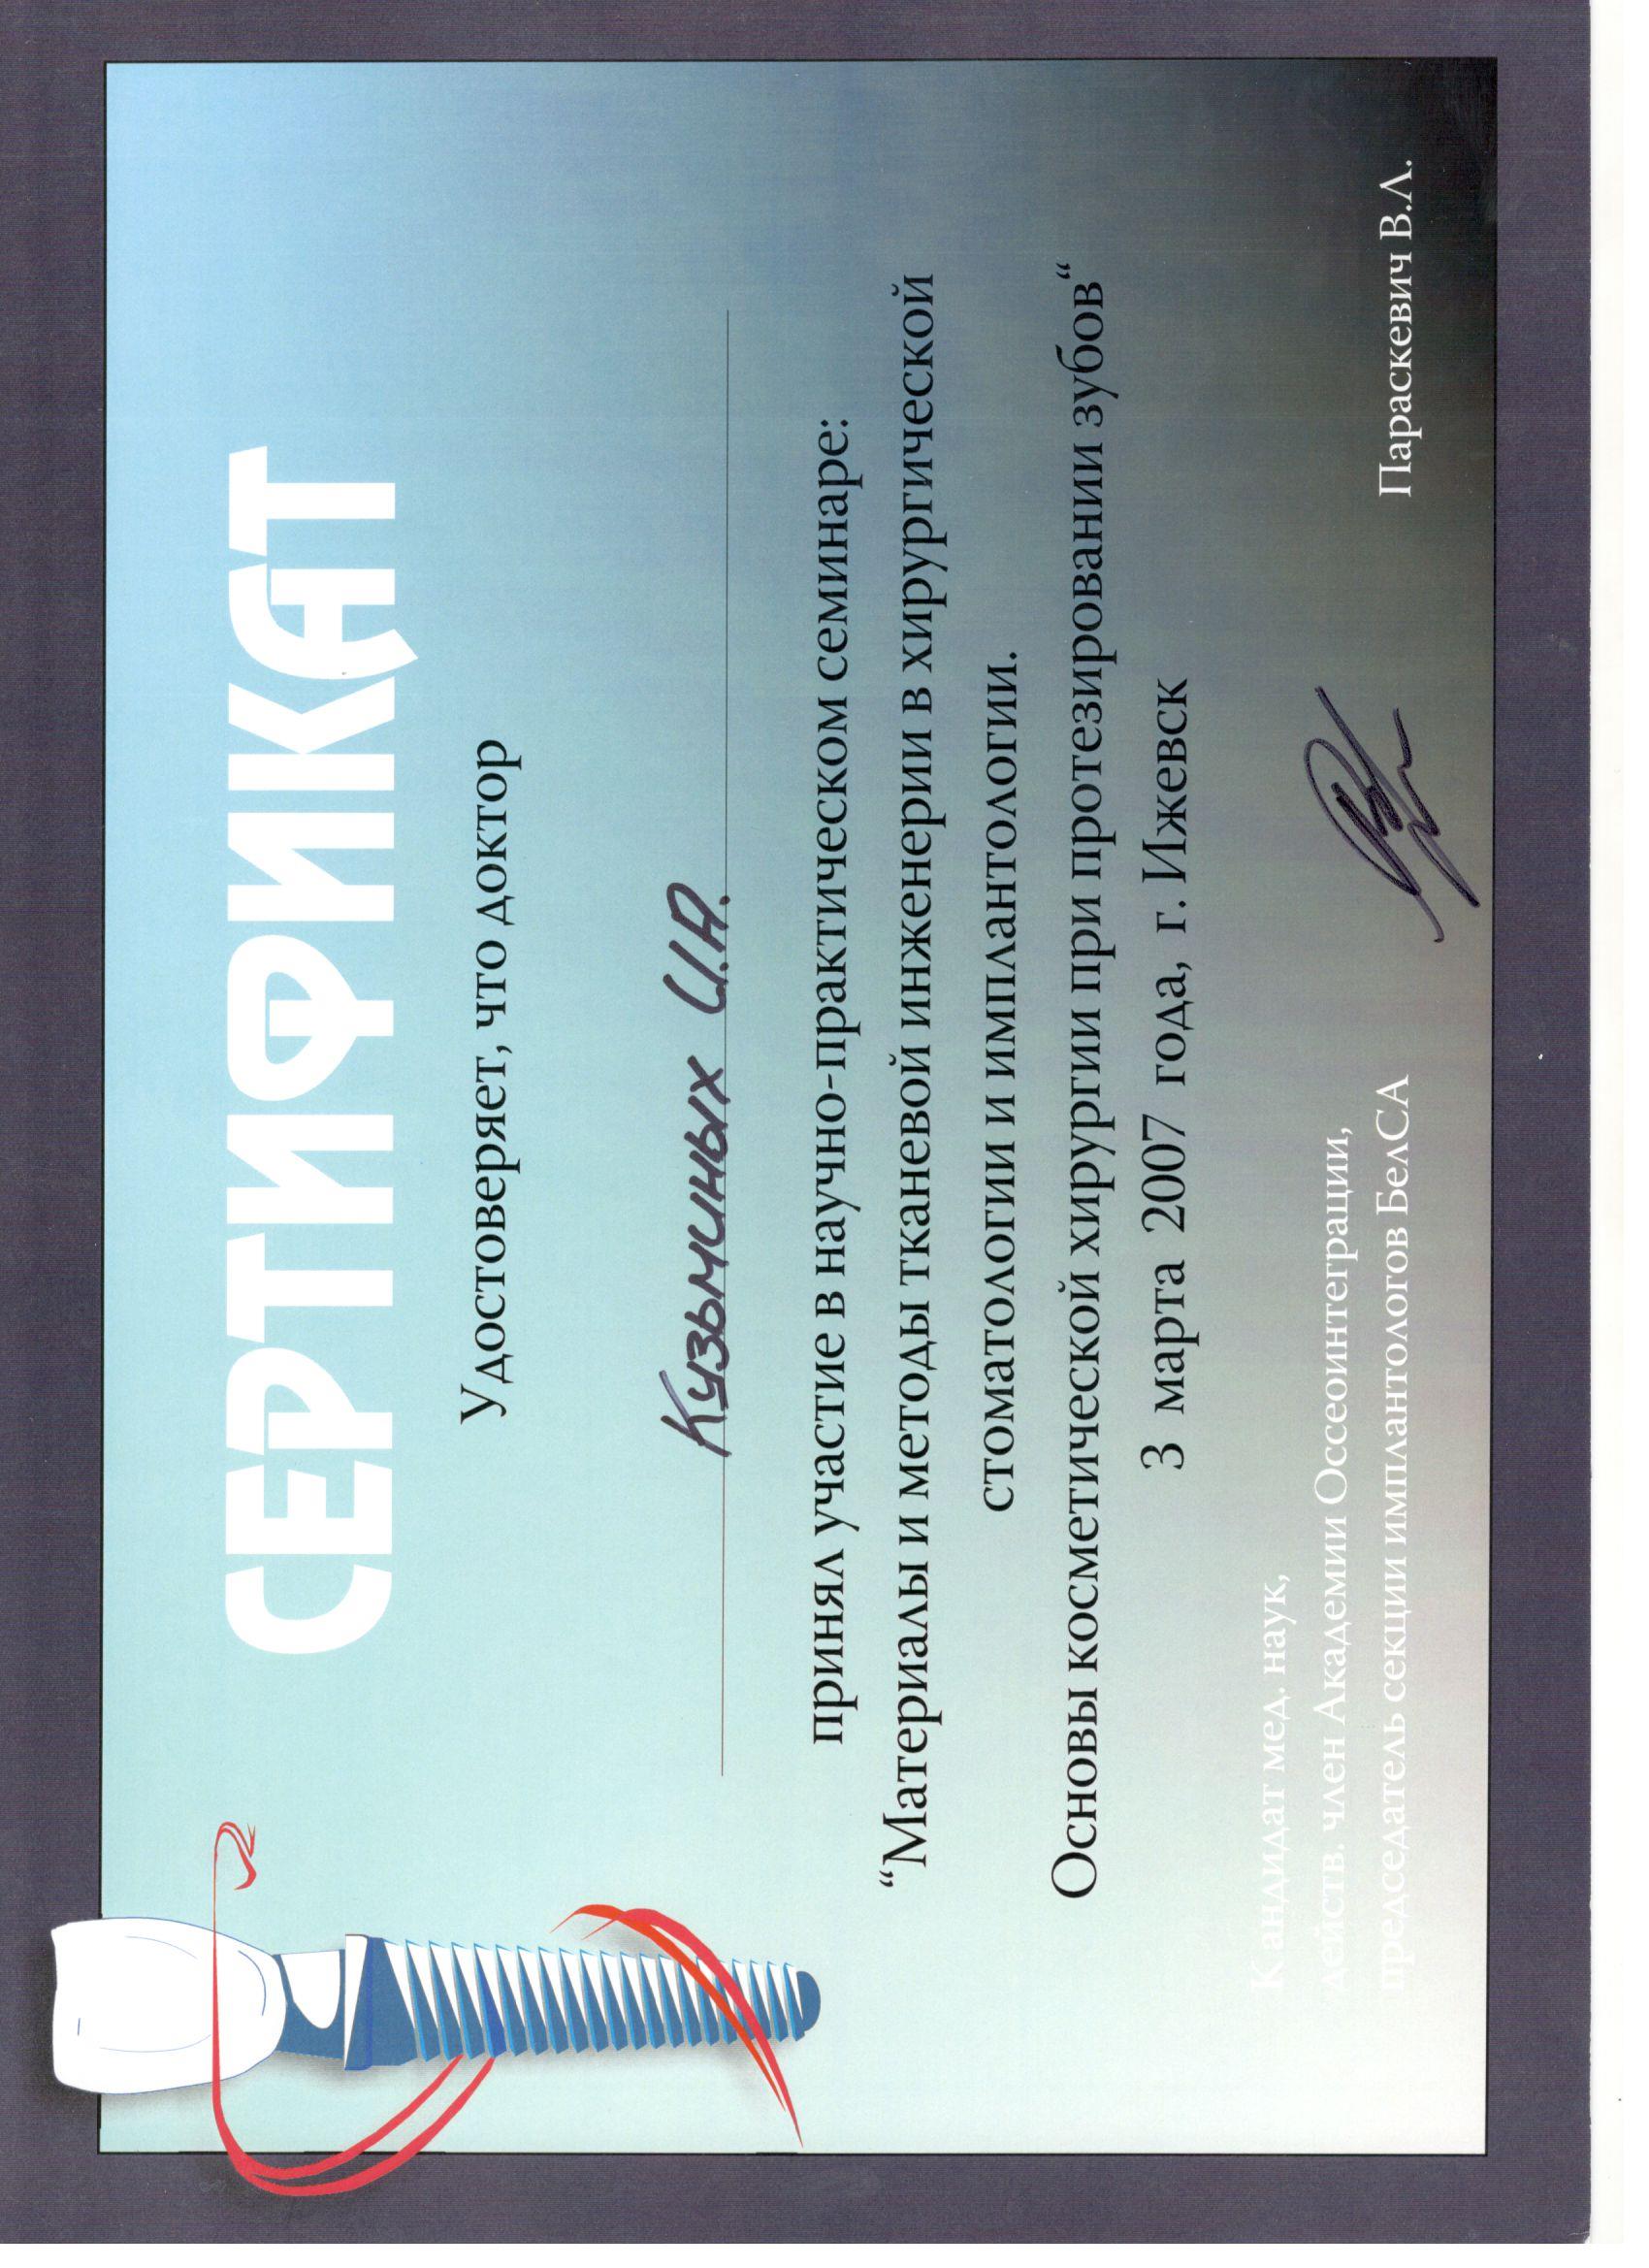 СЕРТИФИКАТ
Удостоверяет, что доктор
Кузьминых И.А.
принял участие в научно-практическом семинаре:
“Материалы и методы тканевой инженерии в хирургической
стоматологии и имплантологии.
Основы косметической хирургии при протезировании зубов“
3 марта 2007 года, г. Ижевск
Кандидат мед. наук,
действ. член Академии Оссеоинтеграции,
председатель секции имплантологов БелСА
Параскевич В.Л.